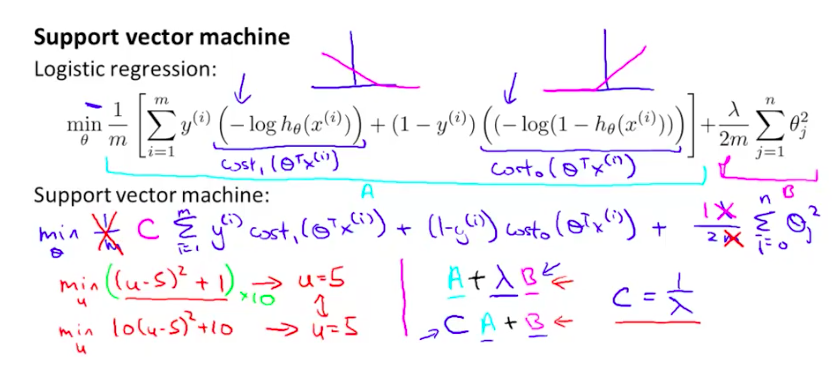 Support vector machine
Logistic regression:
min_θ 1/m [ Σ_{i=1}^{m} y^{(i)} (−log h_θ(x^{(i)})) + (1 − y^{(i)}) ((−log(1 − h_θ(x^{(i)}))) ] + λ/2m Σ_{j=1}^{n} θ_j^2
cost_1(θ^T x^{(i)}) cost_0(θ^T x^{(i)})
A B
Support vector machine:
min_θ 1/m C Σ_{i=1}^{m} y^{(i)} cost_1(θ^T x^{(i)}) + (1-y^{(i)}) cost_0(θ^T x^{(i)}) + 1 λ/2m Σ_{i=0}^{n} θ_j^2
min_u ((u-5)^2 + 1) ×10 → u=5 A + λ B ←
min_u 10(u-5)^2+10 → u=5 → C A + B ← C = 1/λ